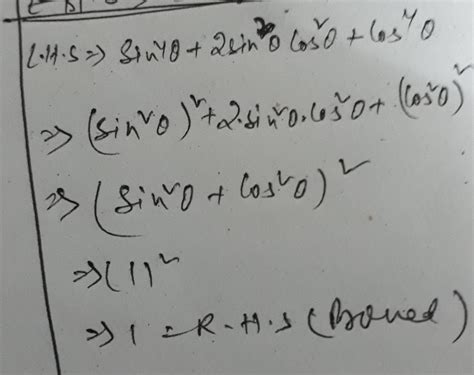 L.H.S ⇒ Sin⁴θ + 2sin²θ Cos²θ + Cos⁴θ
⇒ (Sin²θ)² + 2.Sin²θ.Cos²θ + (Cos²θ)²
⇒ (Sin²θ + Cos²θ)²
⇒ (1)²
⇒ 1 = R.H.S (Proved)